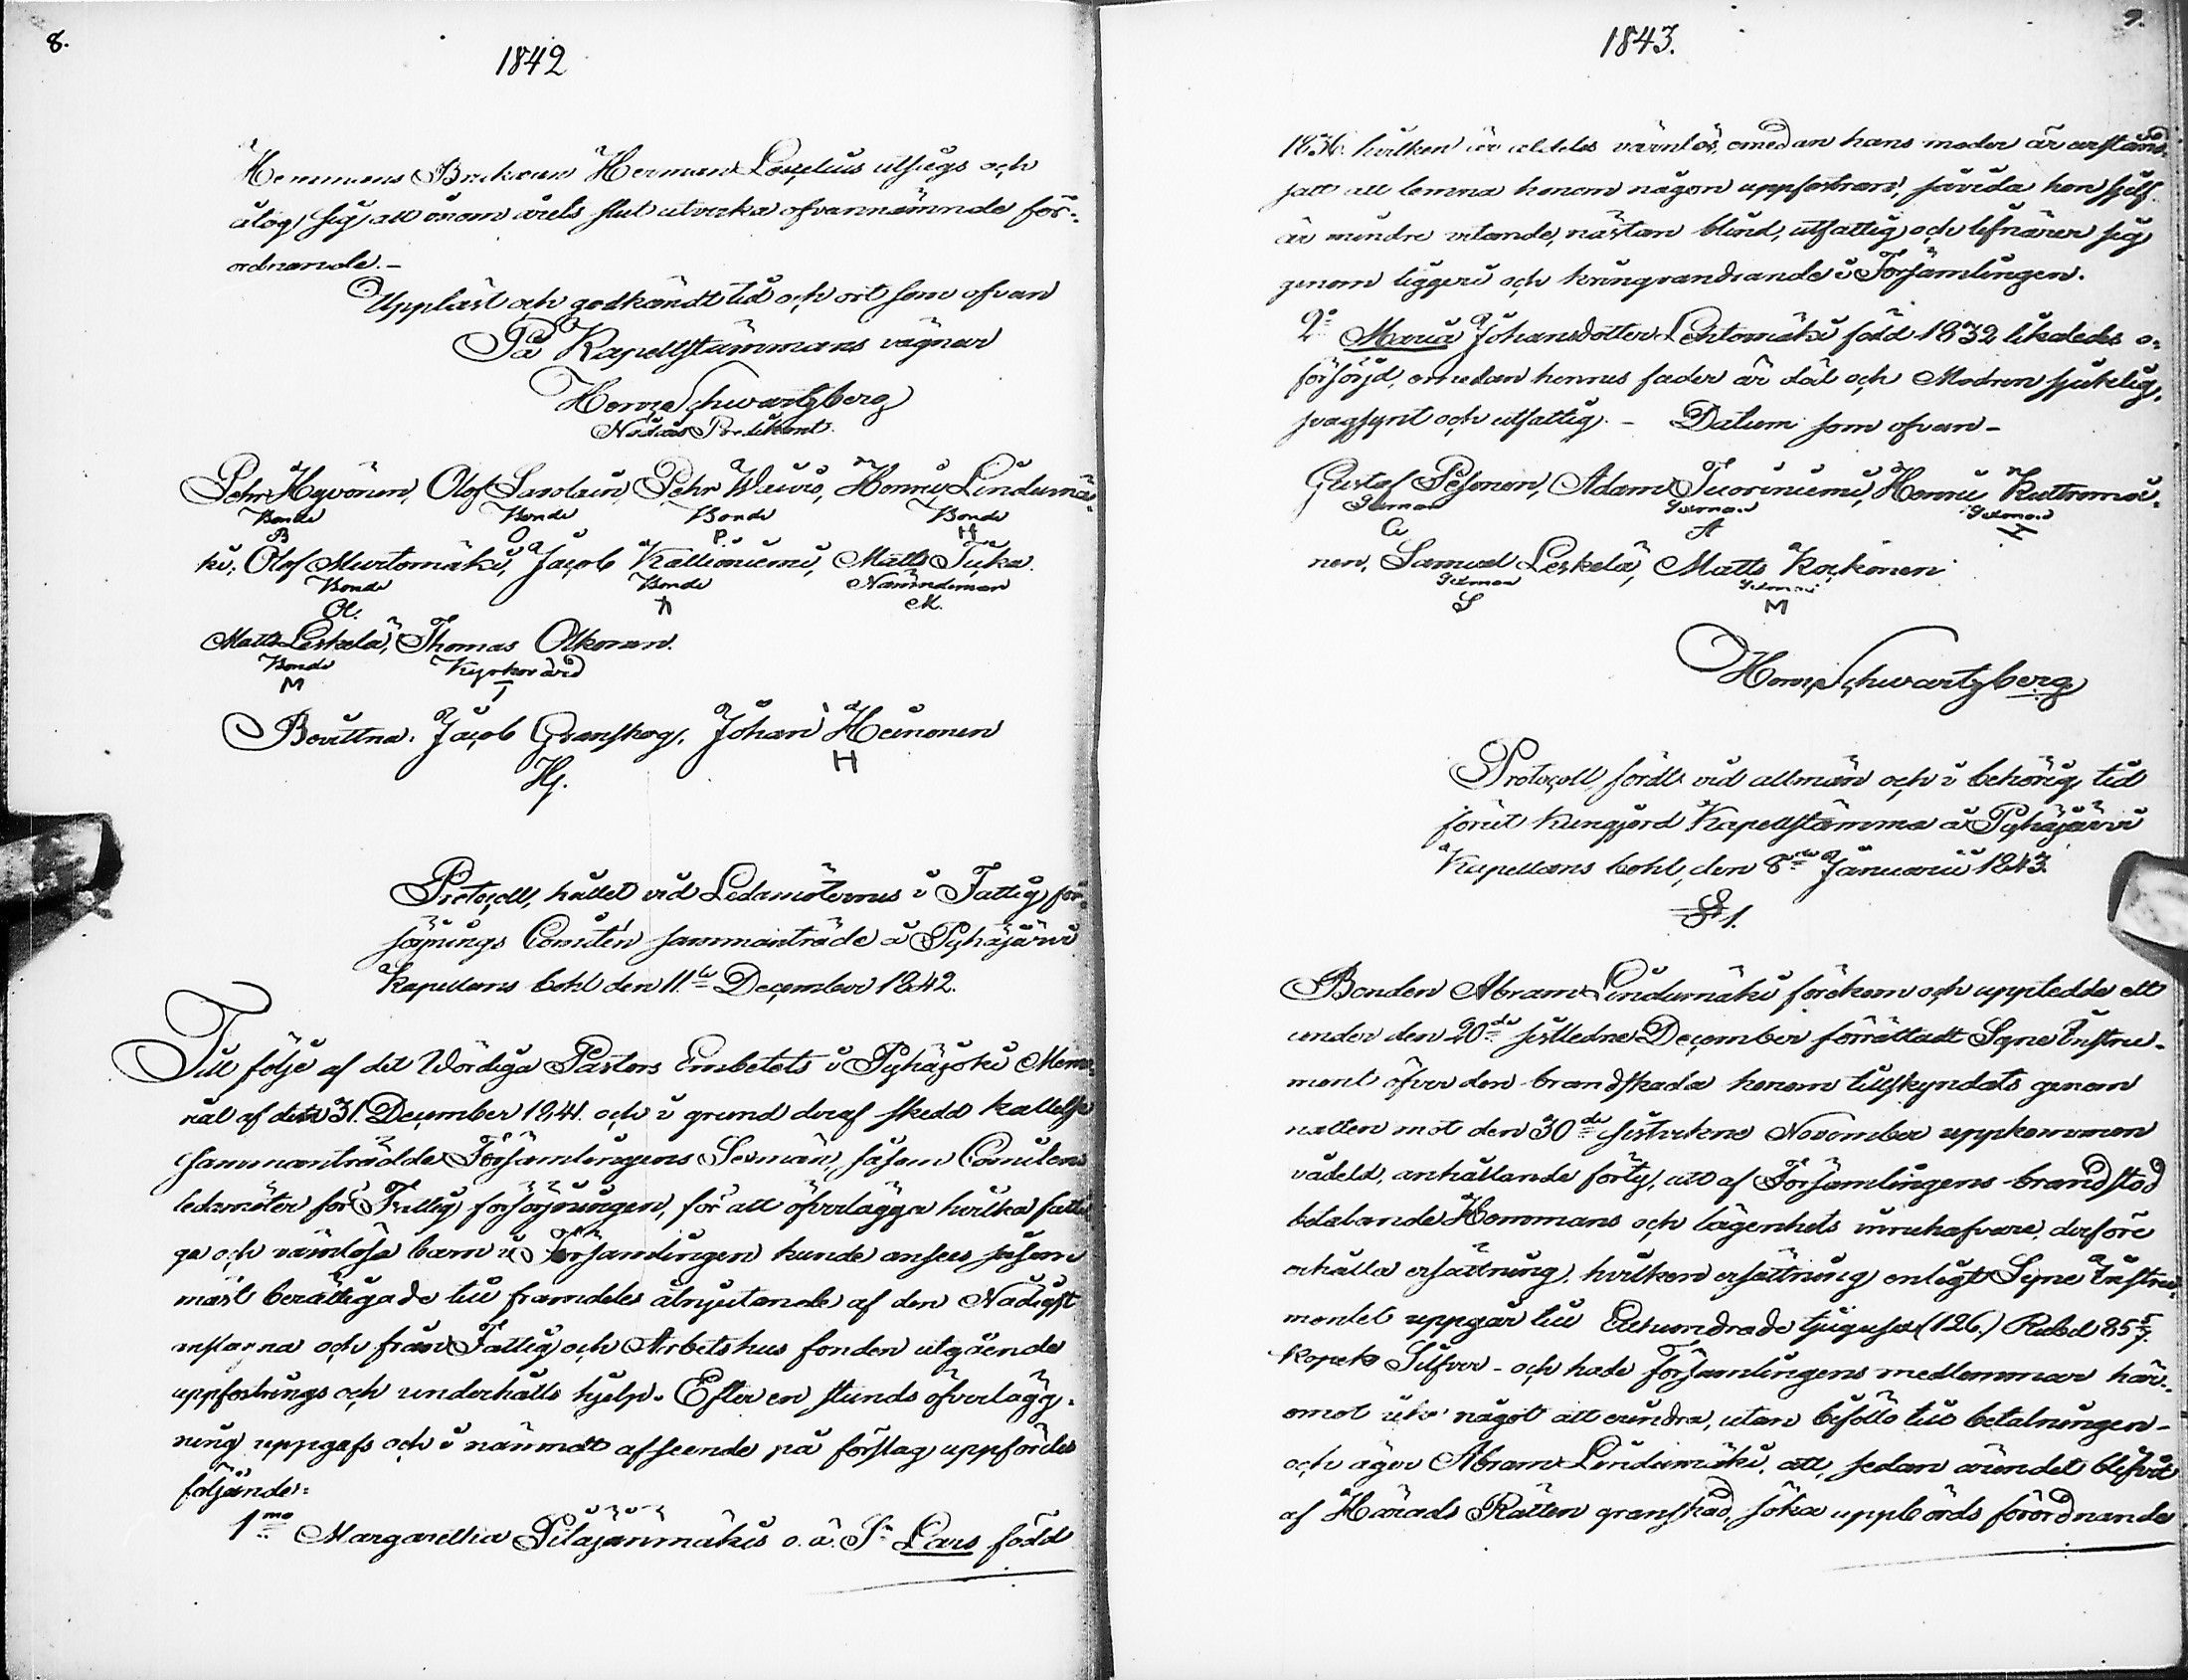 8.
1842
Hemmans Brukaren Herman Lovelius utsågs och
åtog sig att inom årets slut utverka ofvannämnde för-
ordnande.-
Uppläst och godkändt tid och ort som ofvan
På Kapellstämmans vägnar
Henric Schwartzberg
Nådårs Predikant.
Pehr Hyvönen, Olof Savolain, Pehr Wiuvis, Henric Lindumä-
Bonde Bonde Bonde Bonde
B O P. H
ki, Olof Murtomäki, Jacob Kallioniemi, Matts Tuka.
Bonde Bonde Nämndeman
Ol. M.
Matts Leskelä, Thomas Olkonen.
Bonde Kyrkovärd
M T
Bevittna: Jacob Granskog, Johan Heinonen
H
Protocoll, hållet vid Ledamöternes i Fattig för-
sörjnings Comitén sammanträde å Pyhäjärvi
Kapellans bohl den 11te December 1842.
Till följe af det Wördiga Pastors Embetets i Pyhäjoki Memo-
rial af den 31 December 1841. och i grund deraf skedd kallelse
sammanträdde Församlingens Sexmän, såsom Comitens
ledamöter för Fattig försörjningen, för att öfverlägga hvilka fatti-
ga och värnlösa barn i Församlingen kunde anses såsom
mäst berättigade till framdeles åtnjutande af den Nådigst
anslagna och från Fattig och Arbetshus fonden utgående
uppfostrings och underhålls hjelp. Efter en stunds öfverlägg-
ning uppgafs och i nämndt afseende på förslag uppfördes
följande:
1mo Margaretha Pilajänmäkis o. ä. S. Lars född
9.
1843.
1836. hvilken är aldeles värnlös, emedan hans moder är urstånd-
satt att lemna honom någon uppfostran, såvida hon sjelf
är mindre vetande, nästan blind, utfattig och lifnärer sig
genom tiggeri och kringvandrande i Församlingen.
2o Maria Johansdotter Lehtomäki född 1832 likaledes o-
försörjd, emedan hennes fader är död och Modren sjuklig,
svagsynt och utfattig. - Datum som ofvan -
Gustaf Pesonen, Adam Tuoriniemi, Henric Kuttromäi-
Sexman Sexman Sexman
G A
nen, Samuel Leskelä, Matts Kockonen
Sexman Sexman
S M
Henric Schwartzberg
Protocoll, fördt vid allmän och i behörig tid
förut kungjord Kapellstämma å Pyhäjärvi
Kapellans bohl, den 8de Januarii 1843.
§ 1.
Bonden Abram Lindumäki förekom och uppledde ett
under den 20de sistledne December förrättadt Syne Instru-
ment öfver den brandskada honom tillskyndats genom
natten mot den 30de sistvikne November uppkommen
vådeld, anhållande förty, att af Församlingens brandstod
betalande Hemmans och lägenhets innehafvare, derföre
erhålla ersättning, hvilken ersättning enligt Syne Instru-
mentet uppgår till Etthundrade tjugusex (126.) Rubel 85 5/7
kopek Silfver - och hade församlingens medlemmar här-
emot icke något att erindra, utan biföllo till betalningen -
och äger Abram Lindumäki, att, sedan ärendet blifvit
af Härads Rätten granskad, söka uppbörds förordnande